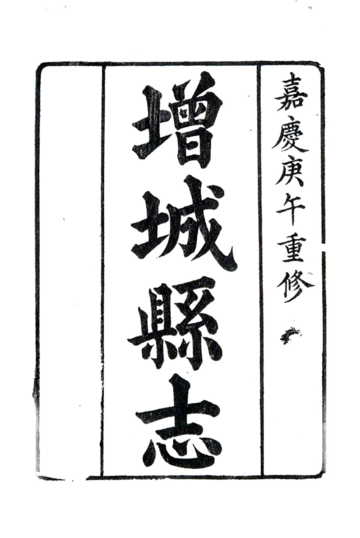 嘉慶庚午重修
增城縣志